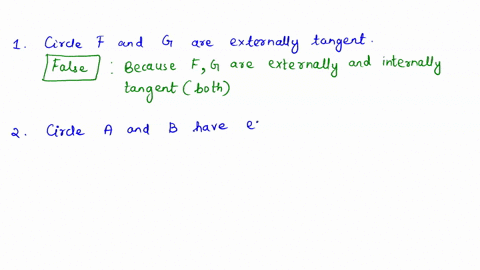 1. Circle F and G are externally tangent.
False : Because F, G are externally and internally
tangent (both)
2. Circle A and B have e